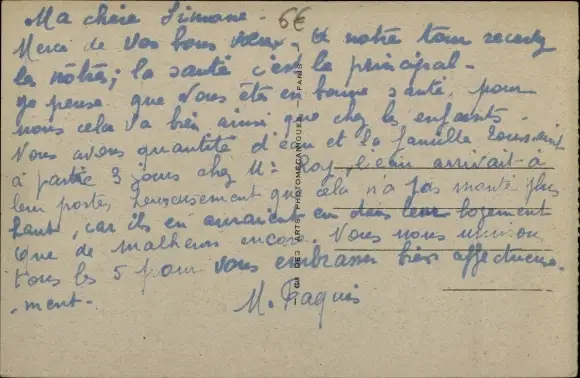 Ma chère Simone - 6€
Merci de vos bons vœux - A notre tour recevez
les nôtres; la santé c'est le principal -
Je pense que vous êtes en bonne santé, pour
nous cela va bien ainsi que chez les enfants -
Nous avons quantité d'eau et la famille Toussaint
à partie 3 jours chez Mr l'eau arrivait à
leur portes, heureusement que cela n'a pas monté plus
haut, car ils en auraient eu dans leur logement
Que de malheurs encore. Nous nous unissons
tous les 5 pour vous embrasser bien affectueuse-
-ment -
M. Paquis
CIE DES ARTS PHOTOMÉCANIQUES - PARIS